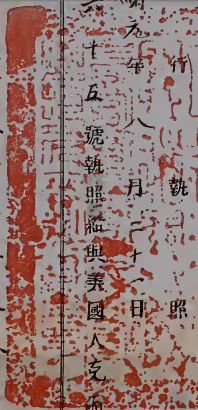 行執照
元年八月二十一日
十五號執照給與美國人克